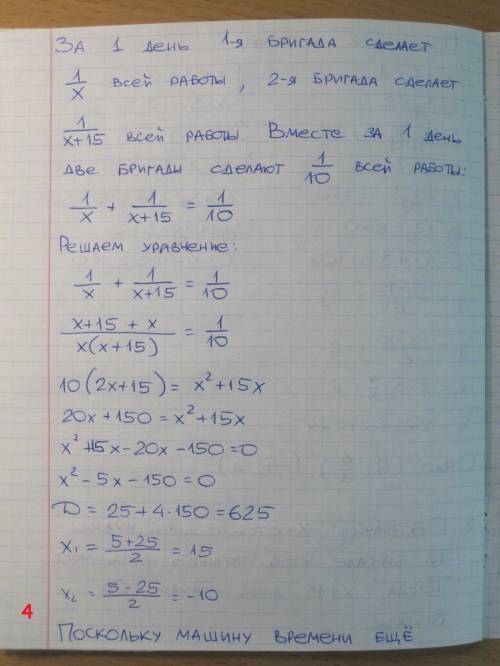 За 1 день 1-я бригада сделает
1/x всей работы, 2-я бригада сделает
1/(x+15) всей работы. Вместе за 1 день
две бригады сделают 1/10 всей работы:
1/x + 1/(x+15) = 1/10
Решаем уравнение:
1/x + 1/(x+15) = 1/10
(x+15+x)/(x(x+15)) = 1/10
10(2x+15) = x²+15x
20x+150=x²+15x
x²+15x-20x-150=0
x²-5x-150=0
D = 25+4·150=625
x₁ = (5+25)/2 = 15
x₂ = (5-25)/2 = -10
4
Поскольку машину времени ещё